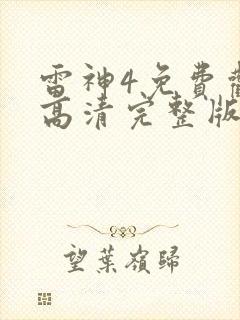 雷神4免費觀
高清完整版
望葉嶺歸